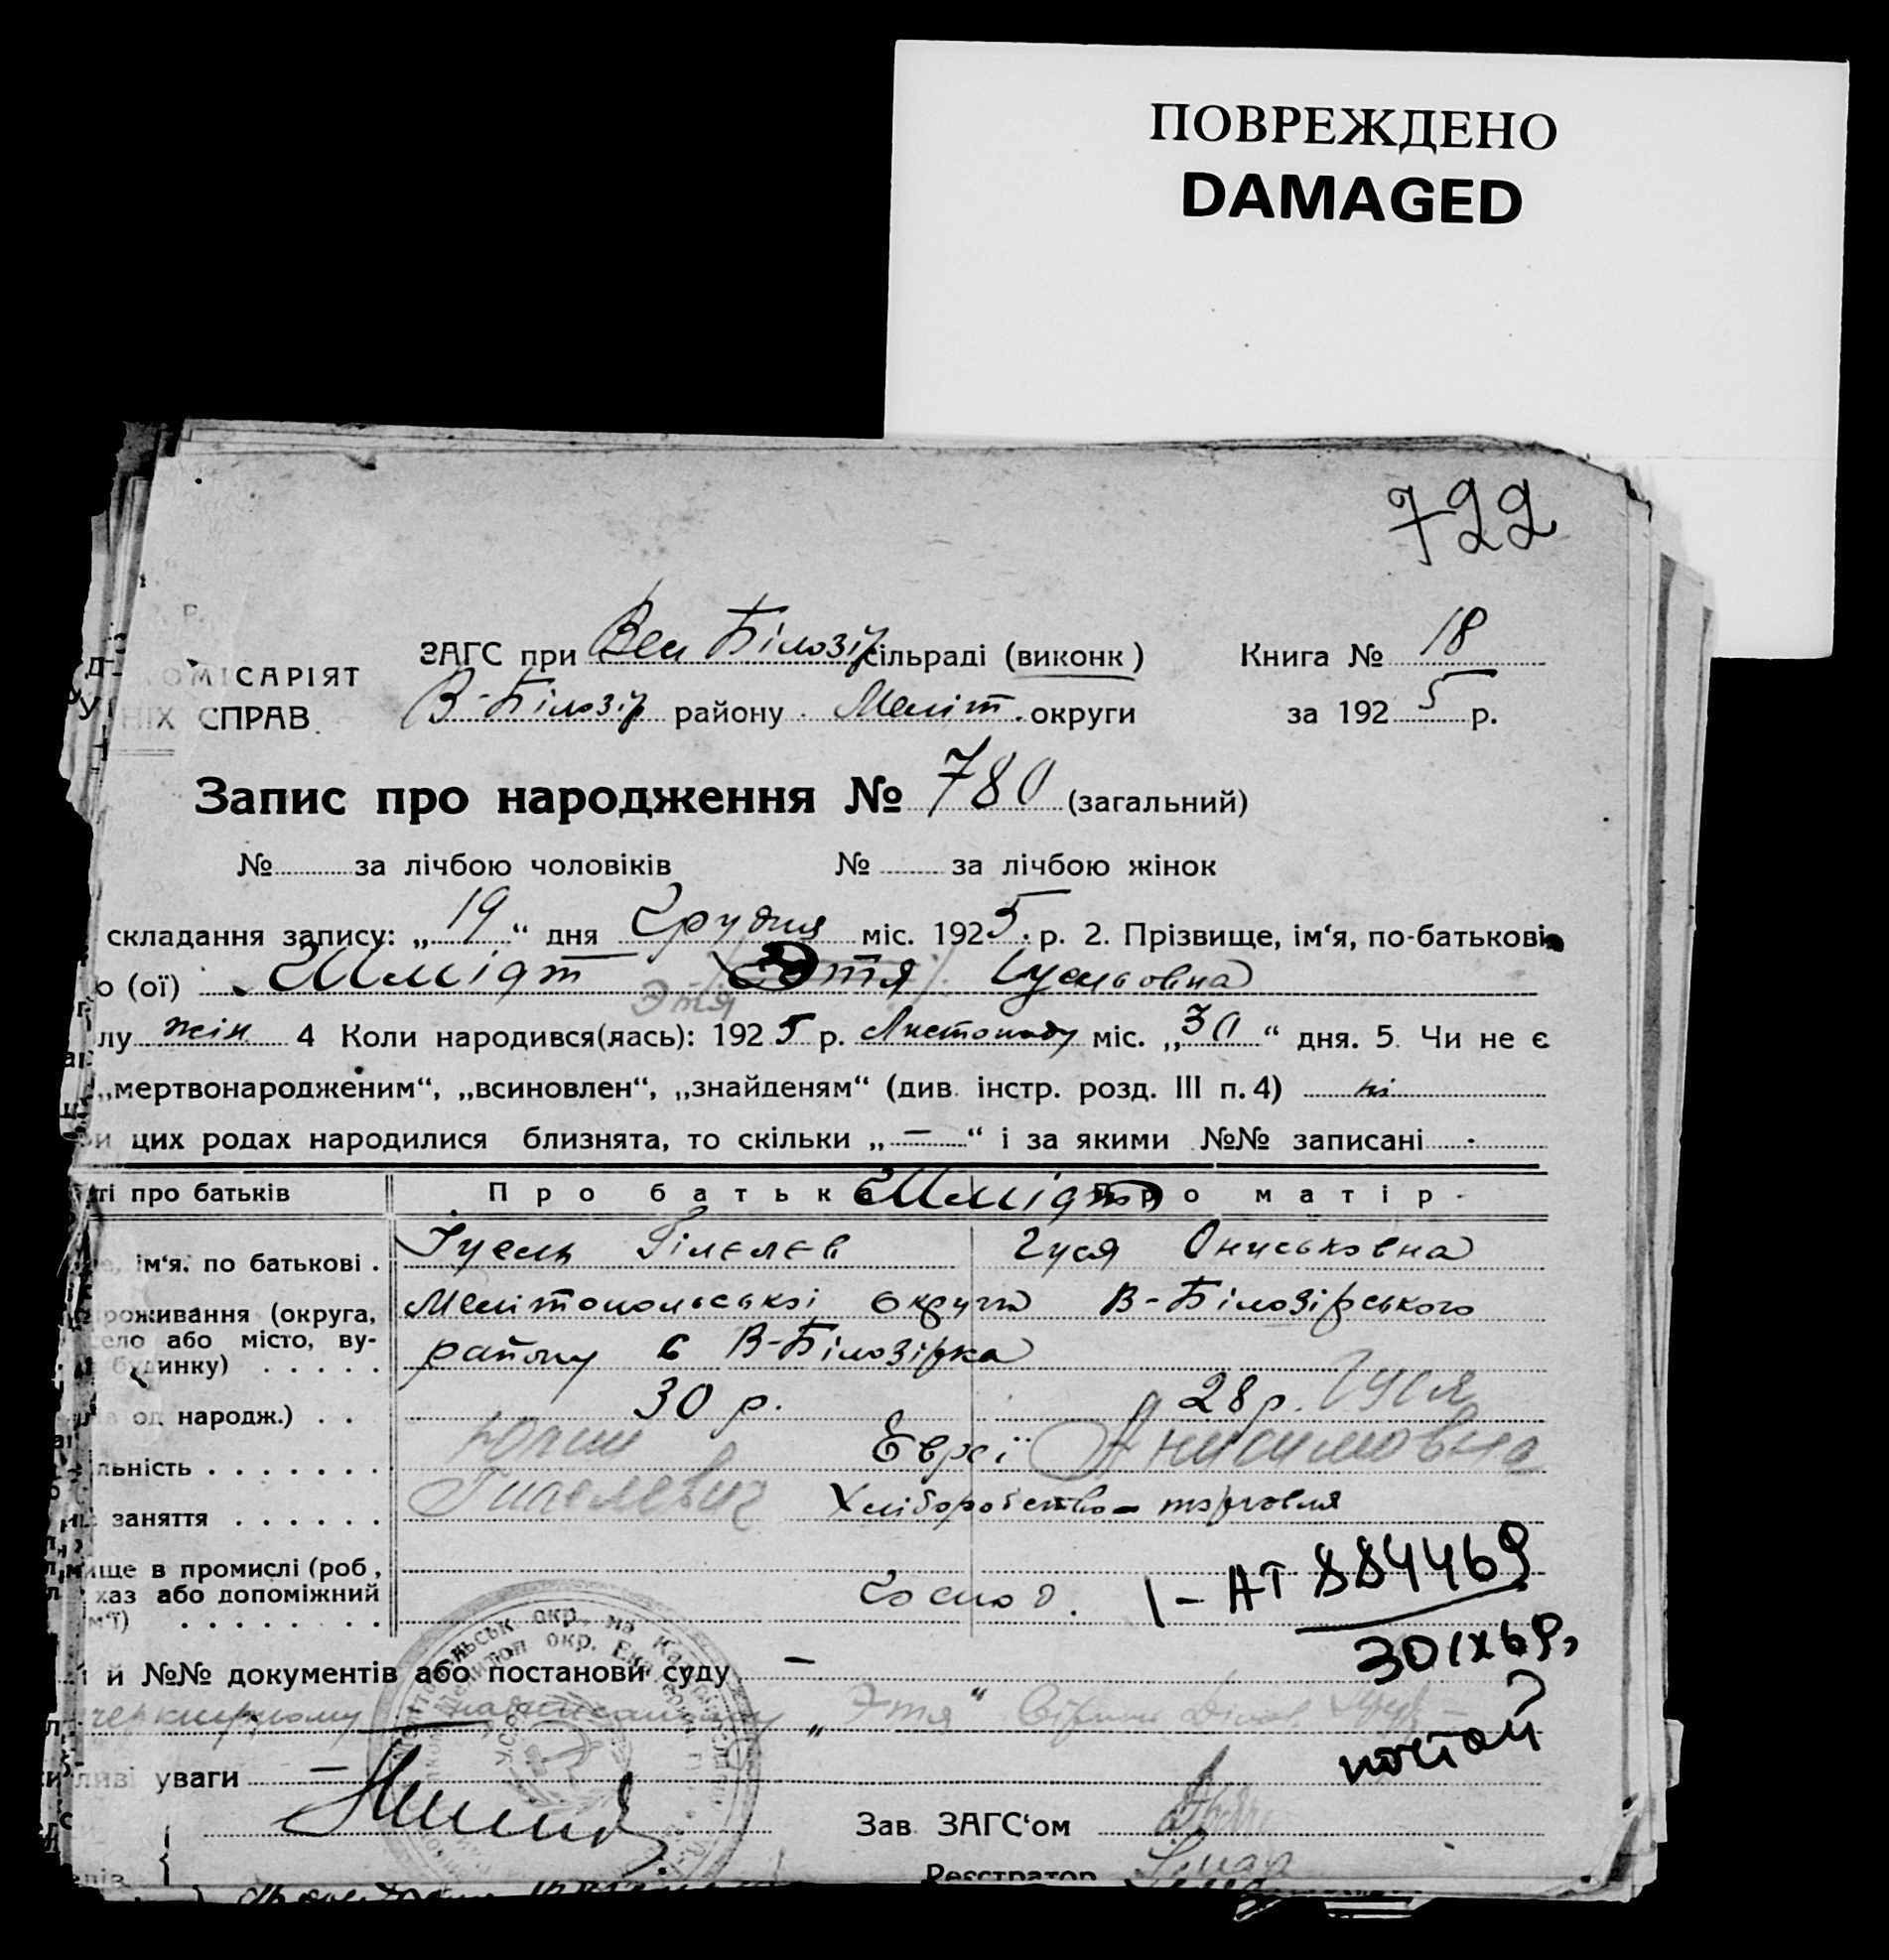 ПОВРЕЖДЕНО
DAMAGED
722
ЗАГС при Вел Білозір сільраді (виконк) Книга № 18
ОМІСАРІЯТ
НІХ СПРАВ. В-Білозір району Меліт. округи за 1925 р.
Запис про народження № 780 (загальний)
№ за лічбою чоловіків № за лічбою жінок
складання запису: „19“ дня Грудня міс. 1925 р. 2. Прізвище, ім‘я, по-батькові
о (ої) Шмідт Этя Гуельовна
Этя
лу жін 4 Коли народився(лась): 1925 р. Листопаду міс. „30“ дня. 5. Чи не є
„мертвонародженим“, „всиновлен“, „знайденям“ (див. інстр. розд. III п. 4) ні
и цих родах народилися близнята, то скільки „—“ і за якими №№ записані -
ті про батьків Про батька Шмідт Про матір
, ім‘я, по батькові . Гуель Гілєлєв Гуся Ониськовна
роживання (округа, Мелітопольської округи В-Білозірського
село або місто, ву-
будинку) . . . . . району с В-Білозірка
од народж.) . . 30 р. 28 р. Гуся
льність . . . . . . . Юлий Євреї Анисимовна
заняття . . . . . . Гилелевич Хліборобство - торговля
ще в промислі (роб,
хаз або допоміжний Господ. 1-АТ 884469
м‘ї) . . . . . . . .
30 IX 69,
й №№ документів або постанови суду —
„Этя“
почтой
ливі уваги —
Зав ЗАГС‘ом
Реєстратор